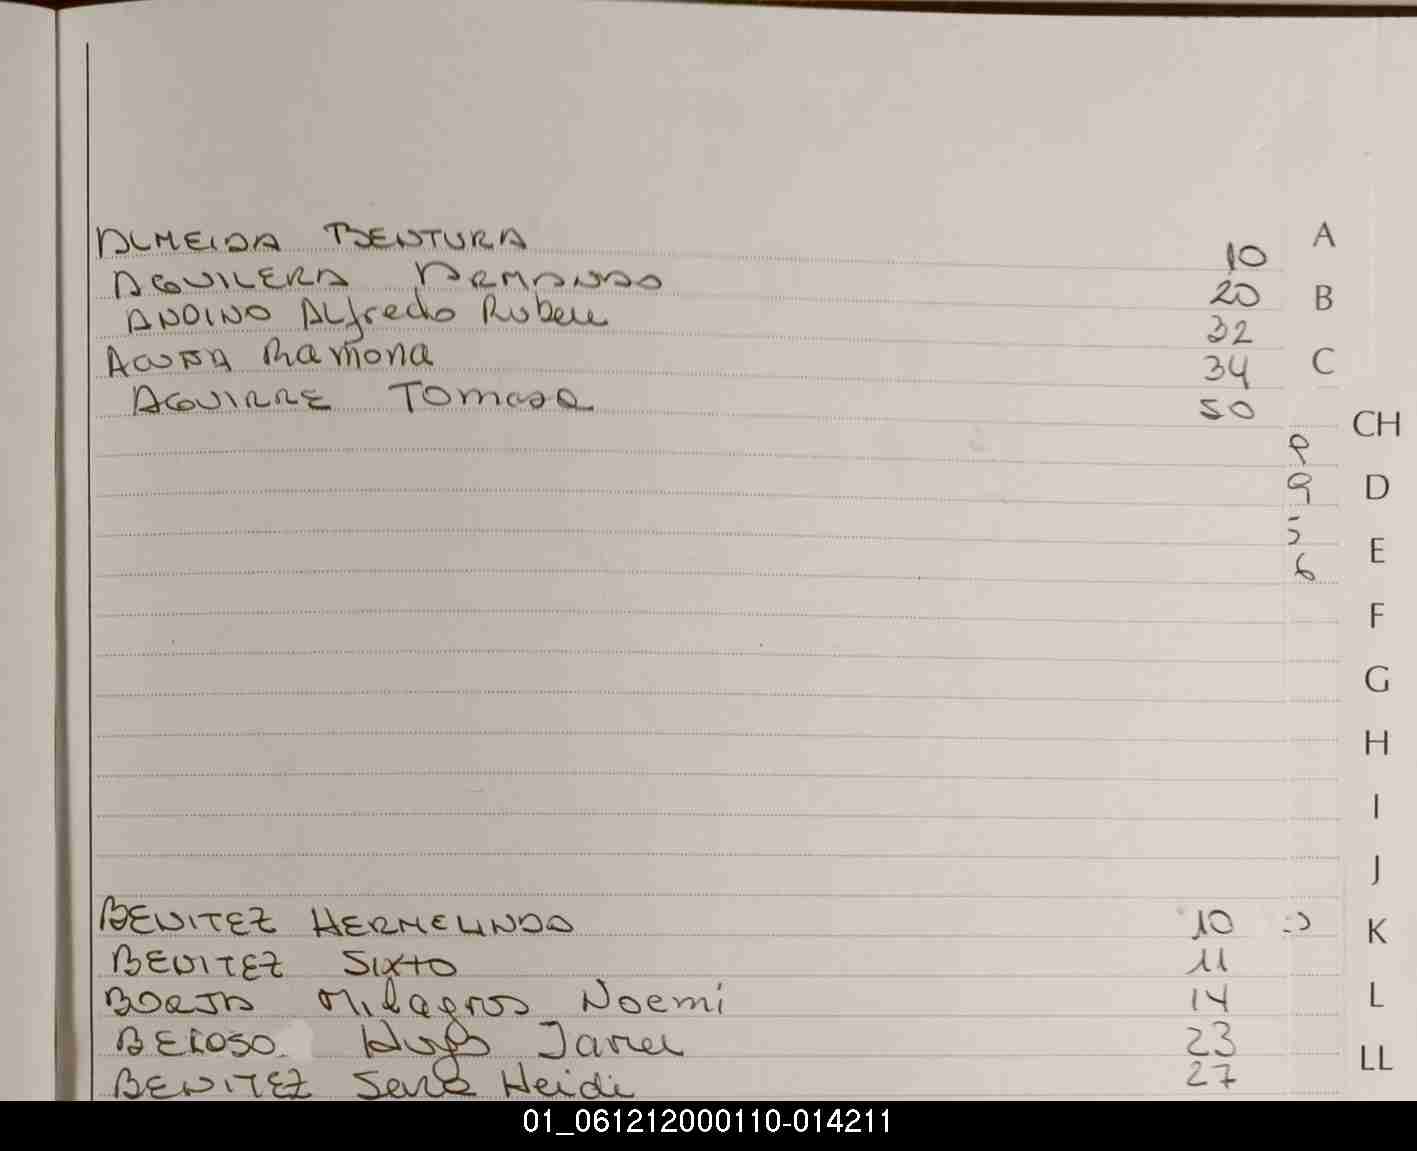 ALMEIDA BENTURA 10 A
AGUILERA ARMANDO 20 B
ANDINO Alfredo Ruben 32
ACUÑA Ramona 34 C
AGUIRRE Tomasa 50
CH
9
9 D
5 E
6
F
G
H
I
J
BENITEZ HERMELINDO 10 K
BENITEZ Sixto 11
BORJA Milagros Noemi 14 L
Hugo Javier 23
LL
BENITEZ Sara Heidi 27
01_061212000110-014211